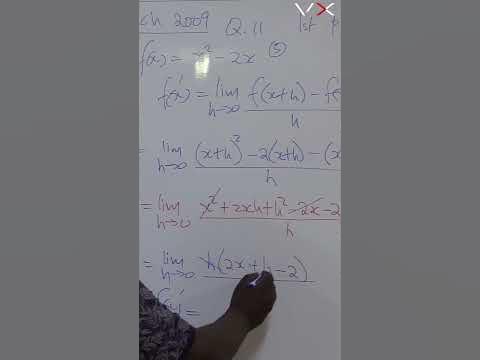 ch 2009 Q.11 1st P
f(x) = x² - 2x (5)
f'(x) = lim h→0 f(x+h) - f( / h
= lim h→0 (x+h)² - 2(x+h) - (x / h
= lim h→0 x² + 2xh + h² - 2x - 2 / h
= lim h→0 h(2x + h - 2)
f'(x) =